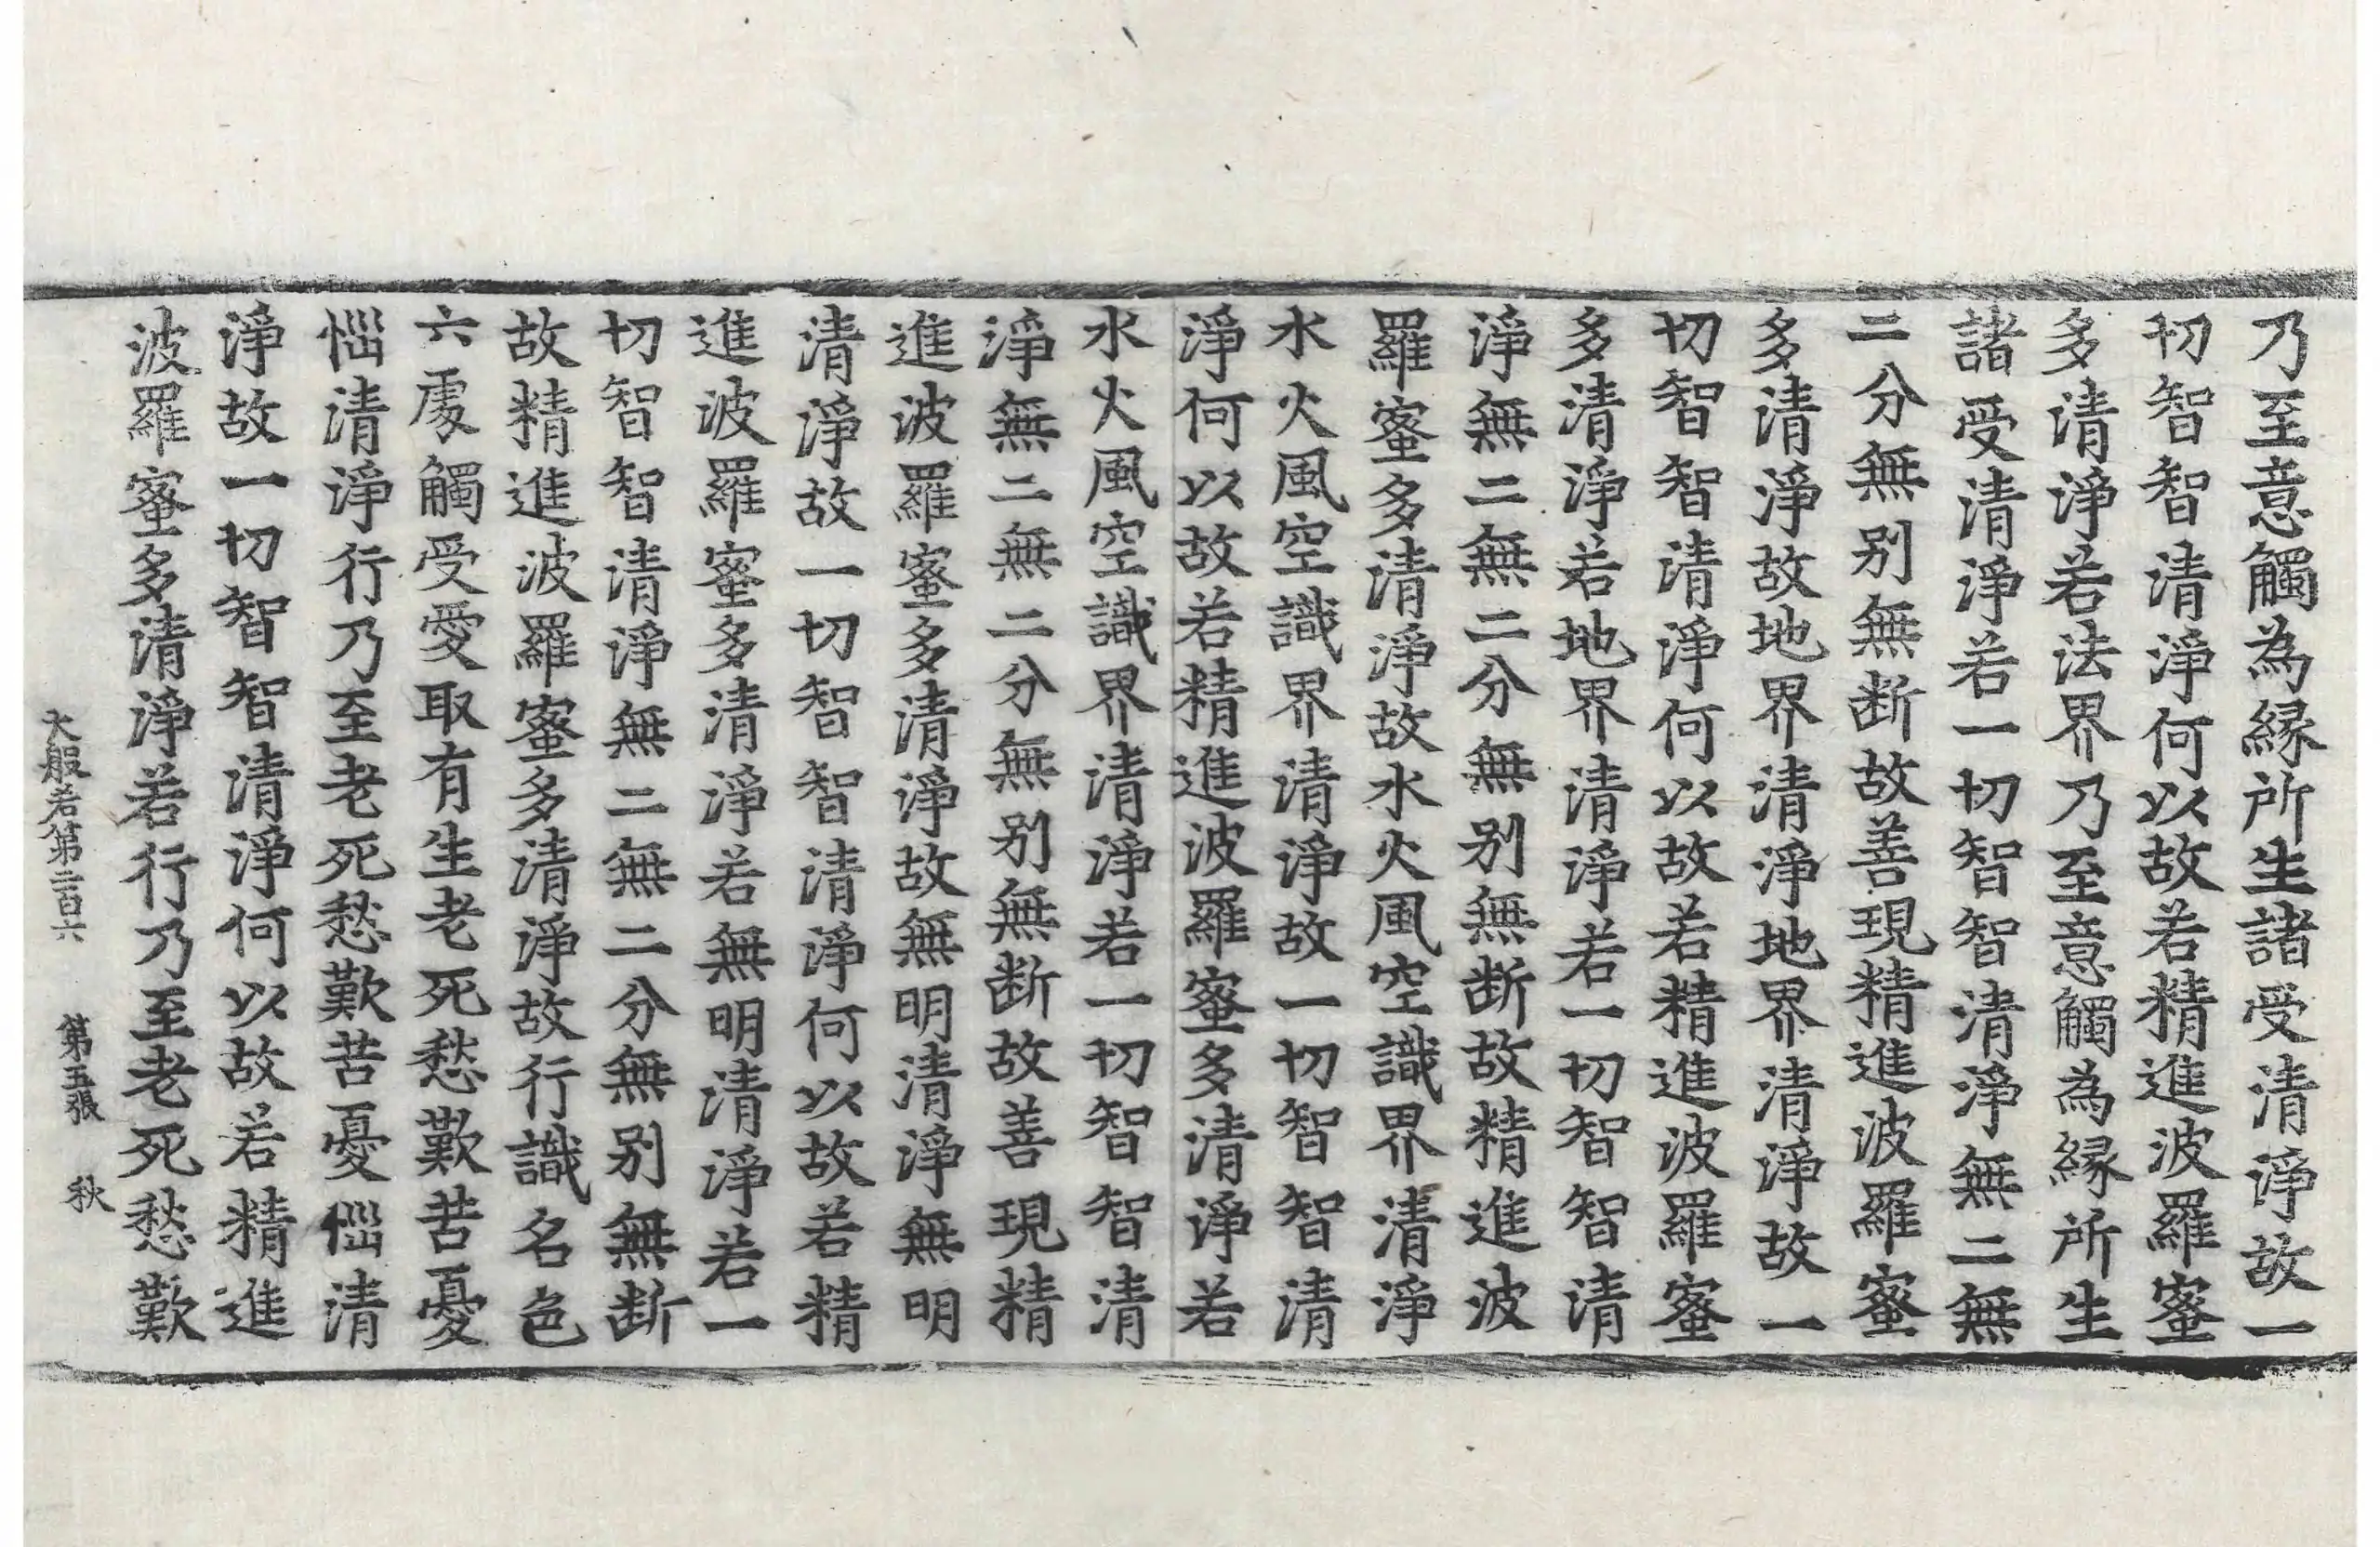 乃至意觸為縁所生諸受清淨故一
切智智清淨何以故若精進波羅蜜
多清淨若法界乃至意觸為縁所生
諸受清淨若一切智智清淨無二無
二分無别無断故善現精進波羅蜜
多清淨故地界清淨地界清淨故一
切智智清淨何以故若精進波羅蜜
多清淨若地界清淨若一切智智清
淨無二無二分無别無断故精進波
羅蜜多清淨故水火風空識界清淨
水火風空識界清淨故一切智智清
淨何以故若精進波羅蜜多清淨若
水火風空識界清淨若一切智智清
淨無二無二分無别無断故善現精
進波羅蜜多清淨故無明清淨無明
清淨故一切智智清淨何以故若精
進波羅蜜多清淨若無明清淨若一
切智智清淨無二無二分無别無断
故精進波羅蜜多清淨故行識名色
六處觸受愛取有生老死愁歎苦憂
惱清淨行乃至老死愁歎苦憂惱清
淨故一切智智清淨何以故若精進
波羅蜜多清淨若行乃至老死愁歎
大般若第二百六 第五張 秋